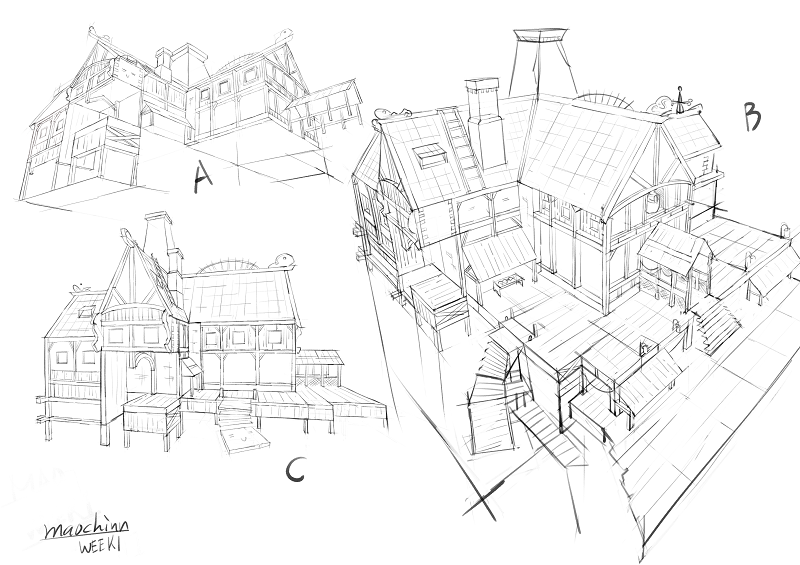 A
B
C
maochinn
WEEK1